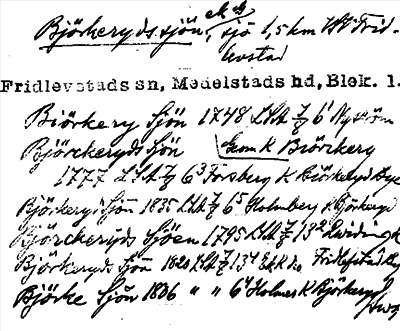 Björkerydssjön, sjö 1,5 km NV Frid-
levstad
Fridlevstads sn, Medelstads hd, Blek. l.
Biörkery Sjön 1748 LSA 6¹ Nyström
Björckeryds Sjön Gem K Biörckery
1777 LSA 6³ Forsberg K Biörkeryd
Björkeryds Sjön 1835 LSA 6⁵ Holmberg K Björkeryd
Björckeryds Sjöen 1795 LSA 13²
Björkeryds Sjön 1820 LSA 13⁴ Fridlefstad
Björke Sjön 1806 " " 6⁴ Holmer K Björkeryd